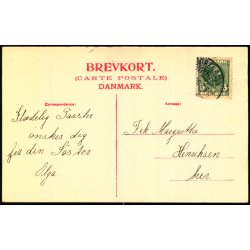 BREVKORT.
(CARTE POSTALE)
DANMARK.
Correspondance:
Adresse:
Glædelig Paaske
ønskes dig
fra din Søster
Olga.
Frk Margrethe
Henriksen
her